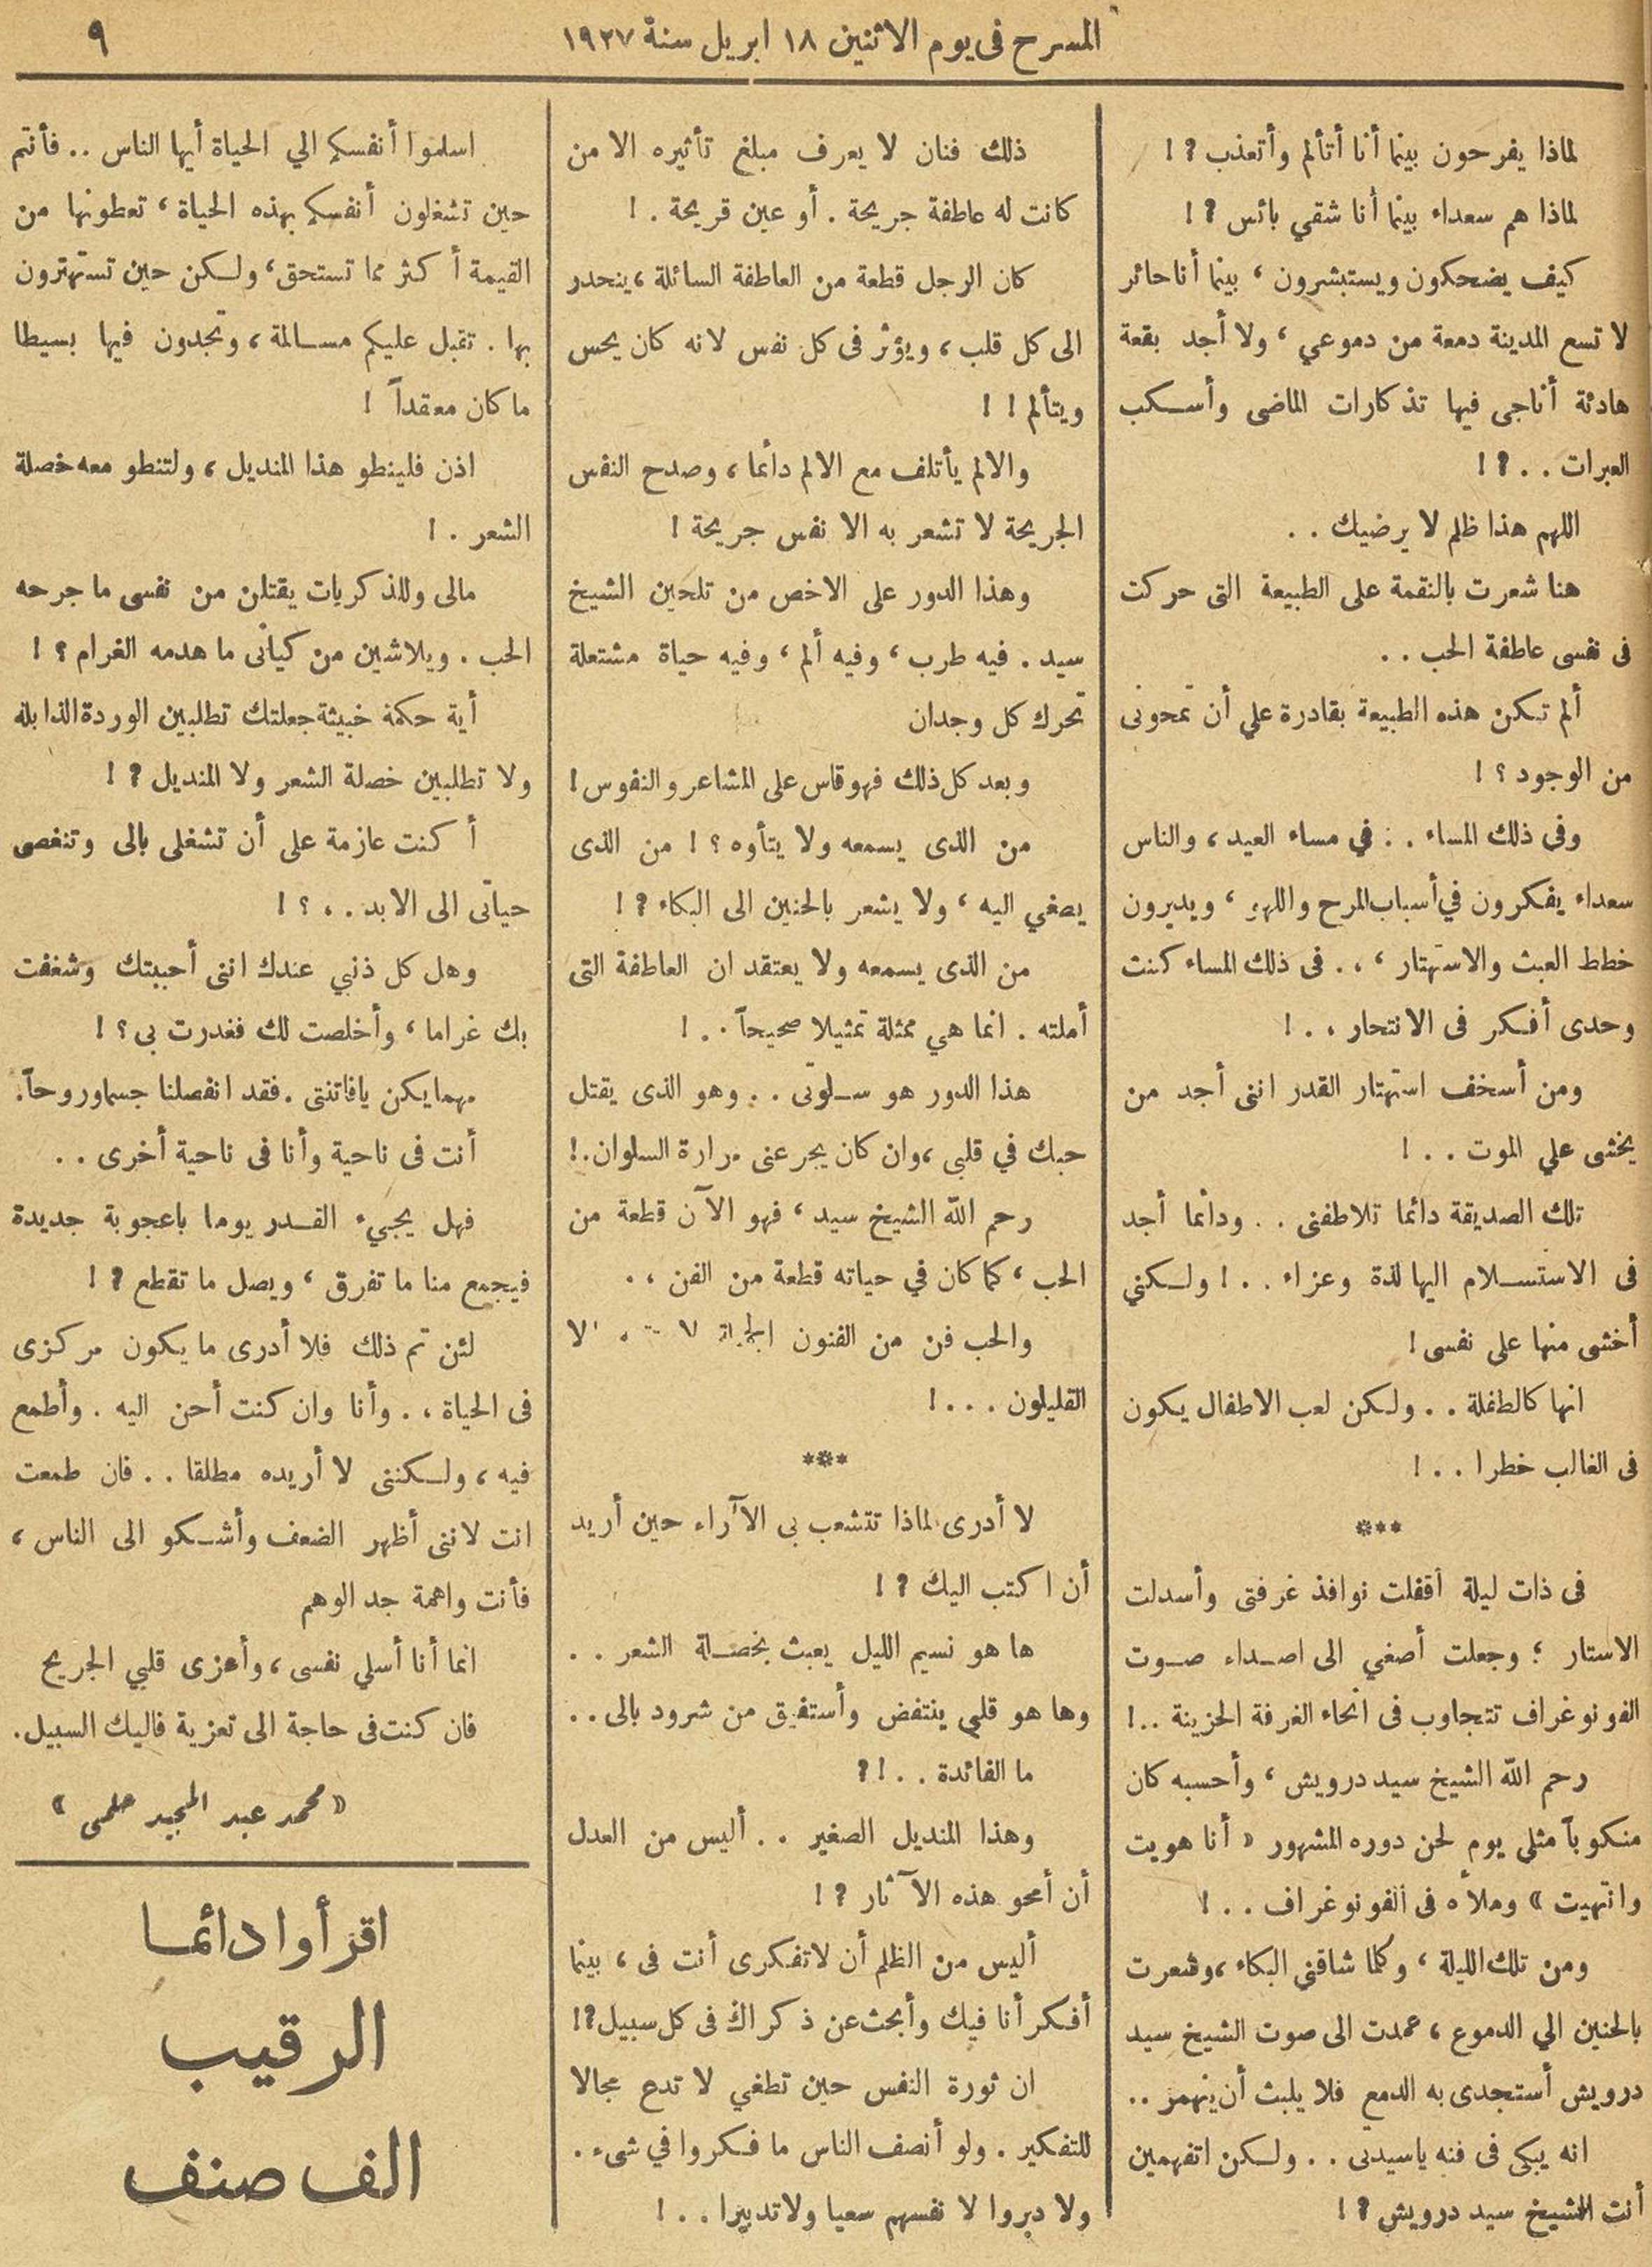 المسرح فى يوم الاثنين ١٨ ابريل سنة ١٩٢٧
٩
لماذا يفرحون بينما أنا أتألم وأتعذب ؟ !
لماذا هم سعداء بينما أنا شقي بائس ؟ !
كيف يضحكون ويستبشرون ، بينما أنا حائر
لا تسع المدينة دمعة من دموعي ، ولا أجد بقعة
هادئة أناجى فيها تذكارات الماضى وأسكب
العبرات . . ؟ !
اللهم هذا ظلم لا يرضيك . .
هنا شعرت بالنقمة على الطبيعة التى حركت
فى نفسى عاطفة الحب . .
ألم تكن هذه الطبيعة بقادرة علي أن تمحونى
من الوجود ؟ !
وفى ذلك المساء . . في مساء العيد ، والناس
سعداء يفكرون في أسباب المرح واللهو ، ويديرون
خطط العبث والاستهتار ، . . فى ذلك المساء كنت
وحدى أفكر فى الانتحار . . !
ومن أسخف استهتار القدر اننى أجد من
يخشى علي الموت . . !
تلك الصديقة دائما تلاطفنى . . ودائما أجد
فى الاستسلام اليها لذة وعزاء . . ! ولكني
أخشى منها على نفسى !
انها كالطفلة . . ولكن لعب الاطفال يكون
فى الغالب خطرا . . !
***
فى ذات ليلة أقفلت نوافذ غرفتى وأسدلت
الاستار ؛ وجعلت أصغي الى اصداء صوت
الفونوغراف تتجاوب فى انحاء الغرفة الحزينة . . !
رحم الله الشيخ سيد درويش ، وأحسبه كان
منكوباً مثلى يوم لحن دوره المشهور « أنا هويت
وانتهيت » وملأه فى الفونوغراف . . !
ومن تلك الليلة ، وكلما شاقني البكاء ، وشعرت
بالحنين الي الدموع ، عمدت الى صوت الشيخ سيد
درويش أستجدى به الدمع فلا يلبث أن ينهمر . .
انه يبكى فى فنه ياسيدتى . . ولكن اتفهمين
أنت الشيخ سيد درويش ؟ !
ذلك فنان لا يعرف مبلغ تأثيره الا من
كانت له عاطفة جريحة . أو عين قريحة . !
كان الرجل قطعة من العاطفة السائلة ، ينحدر
الى كل قلب ، ويؤثر فى كل نفس لانه كان يحس
ويتألم ! !
والالم يأتلف مع الالم دائما ، وصدح النفس
الجريحة لا تشعر به الا نفس جريحة !
وهذا الدور على الاخص من تلحين الشيخ
سيد . فيه طرب ، وفيه ألم ، وفيه حياة مشتعلة
تحرك كل وجدان
وبعد كل ذلك فهو قاس على المشاعر والنفوس !
من الذى يسمعه ولا يتأوه ؟ ! من الذى
يصغي اليه ، ولا يشعر بالحنين الى البكاء ؟ !
من الذى يسمعه ولا يعتقد ان العاطفة التى
أملته . انما هي ممثلة تمثيلا صحيحاً . . !
هذا الدور هو سلوتى . . وهو الذى يقتل
حبك في قلبى ، وان كان يجرعنى مرارة السلوان . !
رحم الله الشيخ سيد ، فهو الآن قطعة من
الحب ، كما كان في حياته قطعة من الفن ، .
والحب فن من الفنون لا
القليلون . . . !
***
لا أدرى لماذا تتشعب بى الآراء حين أريد
أن اكتب اليك ؟ !
ها هو نسيم الليل يعبث بخصلة الشعر . .
وها هو قلبي ينتفض وأستفيق من شرود بالى . .
ما الفائدة . . ! ؟
وهذا المنديل الصغير . . أليس من العدل
أن أمحو هذه الآثار ؟ !
أليس من الظلم أن لاتفكرى أنت فى ، بينما
أفكر أنا فيك وأبحث عن ذكراك فى كل سبيل ؟ !
ان ثورة النفس حين تطغي لا تدع مجالا
للتفكير . ولو أنصف الناس ما فكروا في شىء .
ولا دبروا لا نفسهم سعيا ولا تدبيرا . . !
اسلموا أنفسكم الي الحياة أيها الناس . . فأنتم
حين تشغلون أنفسكم بهذه الحياة ، تعطونها من
القيمة أكثر مما تستحق ، ولكن حين تستهترون
بها . تقبل عليكم مسالمة ، وتجدون فيها بسيطا
ما كان معقداً !
اذن فلينطو هذا المنديل ، ولتنطو معه خصلة
الشعر . !
مالى وللذكريات يقتلن من نفسى ما جرحه
الحب . ويلاشين من كيانى ما هدمه الغرام ؟ !
أية حكمة خبيثة جعلتك تطلبين الوردة الذابلة
ولا تطلبين خصلة الشعر ولا المنديل ؟ !
أكنت عازمة على أن تشغلى بالى وتنغصى
حياتى الى الابد . ، ؟ !
وهل كل ذنبي عندك اننى أحببتك وشغفت
بك غراما ، وأخلصت لك فغدرت بى ؟ !
مهما يكن يافاتنتى . فقد انفصلنا جسما وروحاً .
أنت فى ناحية وأنا فى ناحية أخرى . .
فهل يجيء القدر يوما باعجوبة جديدة
فيجمع منا ما تفرق ، ويصل ما تقطع ؟ !
لئن تم ذلك فلا أدرى ما يكون مركزى
فى الحياة ، . وأنا وان كنت أحن اليه . وأطمع
فيه ، ولكننى لا أريده مطلقا . . فان طمعت
انت لاننى أظهر الضعف وأشكو الى الناس ،
فأنت واهمة جد الوهم
انما أنا أسلي نفسى ، وأعزى قلبي الجريح
فان كنت فى حاجة الى تعزية فاليك السبيل .
« محمد عبد المجيد حلمى »
اقرأوا دائما
الرقيب
الف صنف